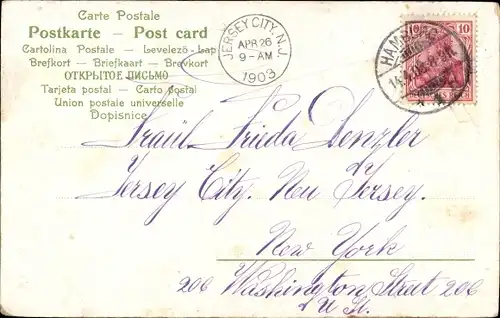 Carte Postale
Postkarte - Post card
Cartolina Postale - Levelező-Lap
Brefkort - Briefkaart - Brevkort
ОТКРЫТОЕ ПИСЬМО
Tarjeta postal - Carta postal
Union postale universelle
Dopisnice
JERSEY CITY, N.J.
APR 26
9-AM
1903
10 10
HAMBURG
Fraul Frieda Denzler
Jersey City. New Jersey.
New York
206 Washington Street 206
U St.